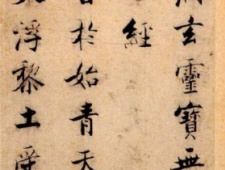 玄靈寶無
經
於始青天
浮黎土